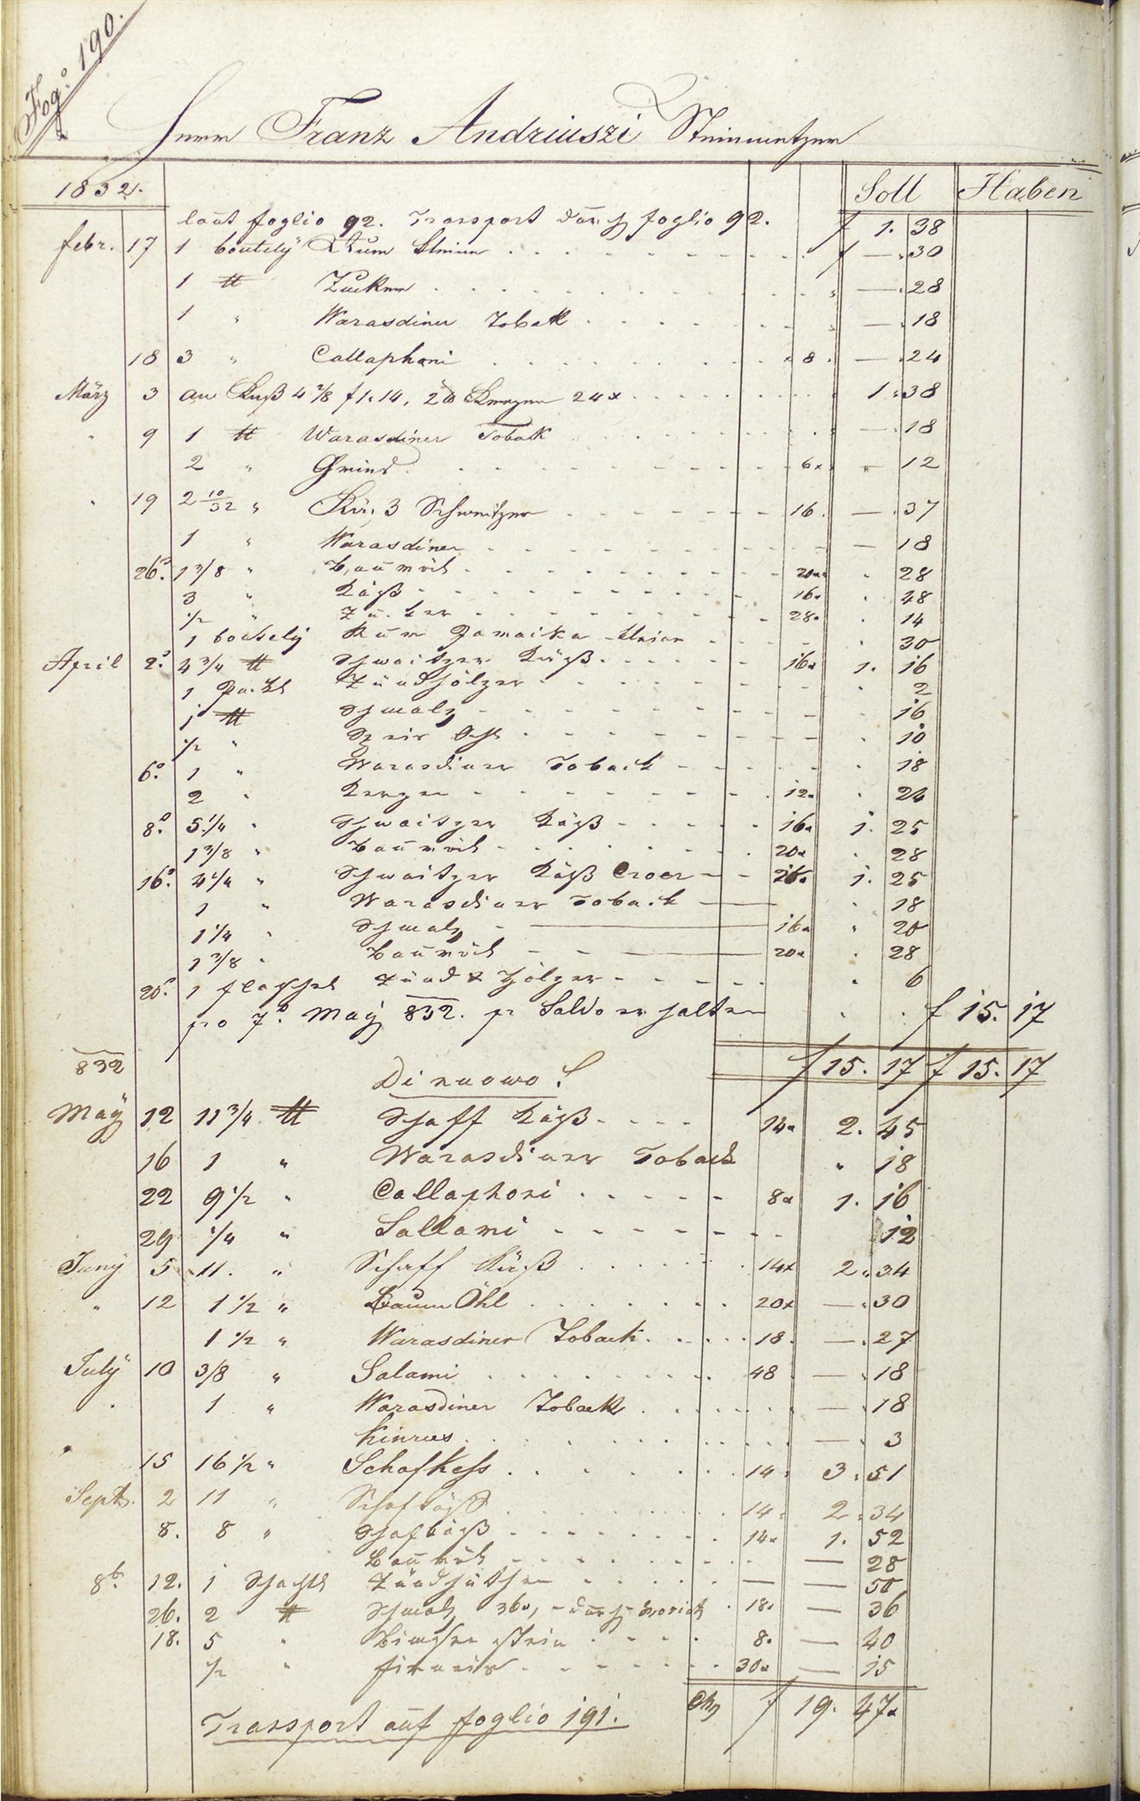 Fog.º 190.
Herr Franz Andriuszi Steinmetzer
1832. Soll Haben
laut foglio 92. Transport durch foglio 92. f 1. 38
febr. 17 1 boutely Rum kleine f — . 30
1 ℔ Zucker — . 28
1 " Warasdiner Toback — . 18
18 3 " Callaphoni 8. — . 24
März 3 4 2/8 f 1. 14, 2 ℔ Kerzen 24x 1. 38
" 9 1 ℔ Warasdiner Toback — . 18
2 " Gries 6x — 12
" 19 2 10/32 " Schweitzer 16. — . 37
1 " Warasdiner — 18
26º. 1 3/8 " Baumöhl 20x . 28
3 " Käß 16x . 48
1/2 " Zucker 28x . 14
1 boutely Rum Jamaika kleine . 30
April 2º. 4 3/4 ℔ Schweitzer Käß 16x 1. 16
1 Packl Zündhölzer . 2
1 ℔ Schmalz . 16
1/2 " Speis Öhl . 10
6º. 1 " Warasdiner Toback . 18
2 " Kerzen 12x . 24
8º. 5 1/4 " Schwaitzer Käß 16x 1. 25
1 3/8 " Baumöhl 20x . 28
16º. 4 1/4 " Schwaitzer Käß Croer 1. 25
1 " Warasdiner Toback . 18
1 1/4 " Schmalz 16x . 20
1 3/8 " Baumöhl 20x . 28
20º. 1 flaschel Zünd & Hölzer . 6
pro 7º. Maÿ 832. pr Saldo erhalten f 15. 17
f 15. 17 f 15. 17
832 Di nuowo!
Maÿ 12 11 3/4 ℔ Schaff Käß 14x 2. 45
16 1 " Warasdiner Toback " 18
22 9 1/2 " Callaphoni 8x 1. 16
29 1/4 " Sallami 12
Juny 5 11. " Schaff Käß 14x 2. 34
" 12 1 1/2 " Baum Öhl 20x — . 30
1 1/2 " Warasdiner Toback 18. — . 27
July 10 3/8 " Salami 48 — . 18
1 " Warasdiner Toback — . 18
Kinrus — . 3
" 15 16 1/2 " Schafkess 14. 3. 51
Septr. 2 11 " Schafkäß 14. 2. 34
8. 8 " Schafkäß 14x 1. 52
Baumöhl — 28
8br. 12. 1 Schachtl — — 50
26. 2 ℔ Schmalz, 36x, durch 18x — 36
18. 5 " Bimsen Stein 8x — 40
1/2 " firneis 30x — 15
Transport auf foglio 191. f 19. 47x